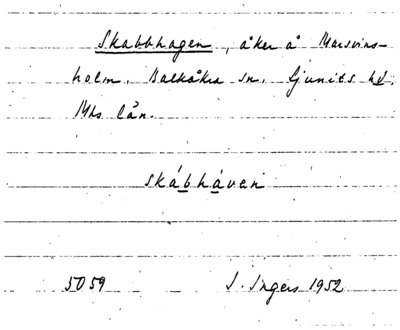 Skabbhagen, åker å Marsvins-
holm. Balkåkra sn. Ljunits hd.
Mhs län.
skábháven
5059 I. Ingers 1952